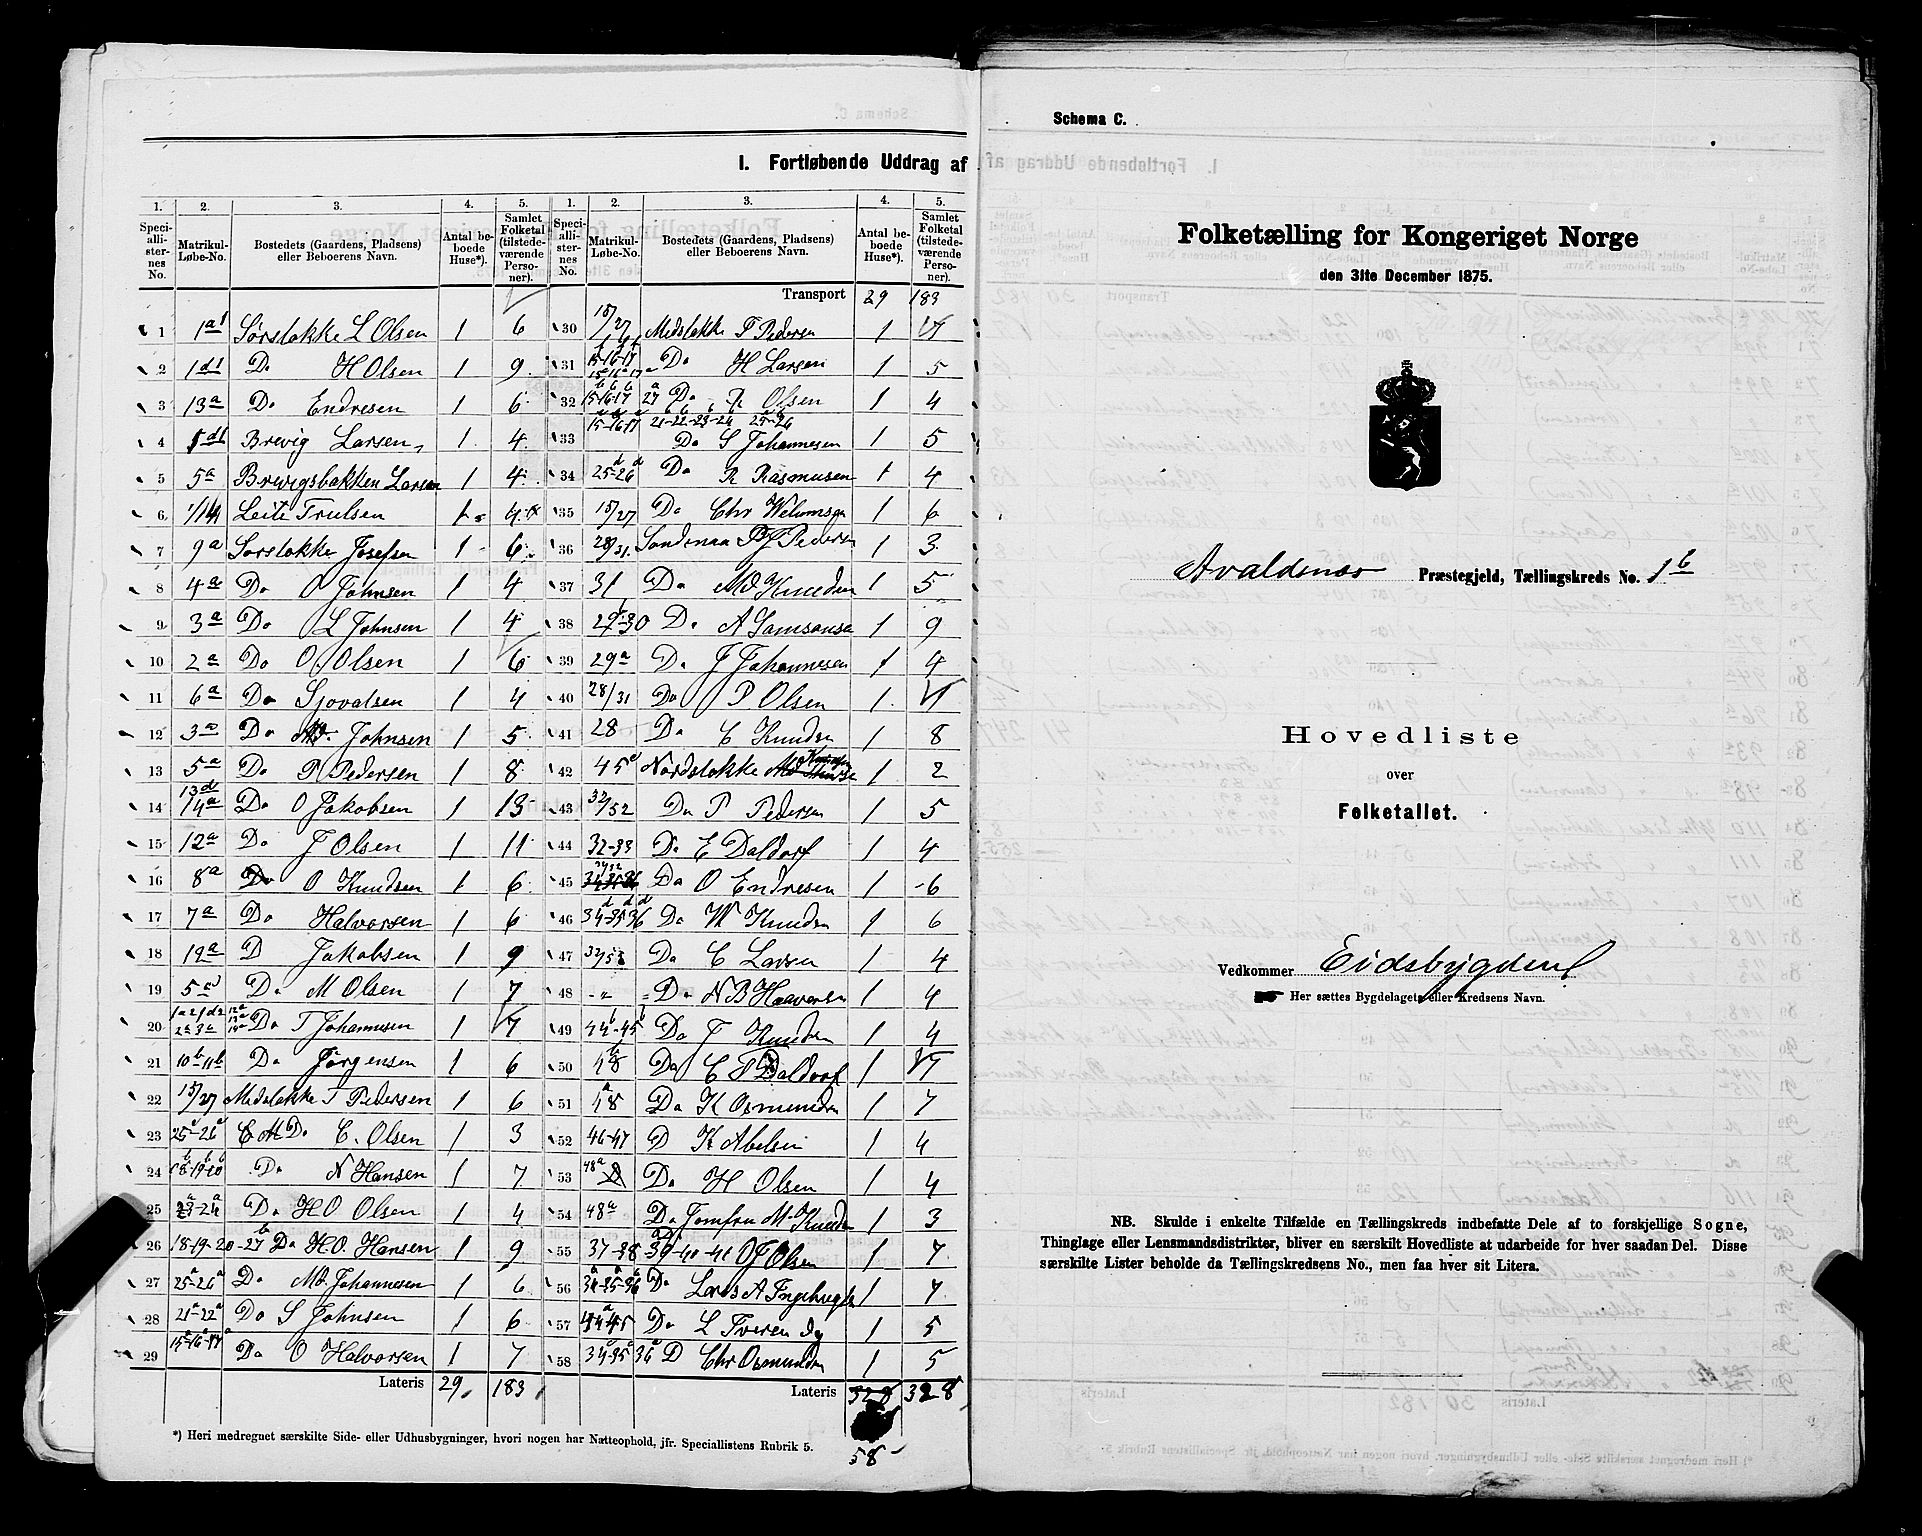 Schema C.
I. Fortløbende Uddrag af
1. 2. 3. 4. 5. 1. 2. 3. 4. 5.
Speciallisternes No. Matrikul-Løbe-No. Bostedets (Gaardens, Pladsens) eller Beboerens Navn. Antal beboede Huse*). Samlet Folketal (tilstedeværende Personer). Speciallisternes No. Matrikul-Løbe-No. Bostedets (Gaardens, Pladsens) eller Beboerens Navn. Antal beboede Huse*). Samlet Folketal (tilstedeværende Personer).
Transport 29 183
1 1a1 Sørstokke L Olsen 1 6
2 1d1 Do H Olsen 1 9
3 13a Do Endresen 1 6
4 1d1 Brevig Larsen 1 4
5 5a Brevigsbakken Larsen 1 4
6 1/14 Leite Trulsen 1 4
7 9a Sørstokke Josefsen 1 6
8 4a Do O Johnsen 1 4
9 3a Do L Johnsen 1 4
10 2a Do O. Olsen 1 6
11 6a Do Sjovalsen 1 4
12 3a Do Johnsen 1 5
13 5a Do P Pedersen 1 8
14 13d 14a Do O Jakobsen 1 13
15 12a Do J Olsen 1 11
16 8a Do O Knudsen 1 6
17 7a Do Halvorsen 1 6
18 12a D Jakobsen 1 9
19 5a Do M Olsen 1 7
20 Do T Johannesen 1 7
21 10b-11b Do Jørgensen 1 6
22 15/27 Medstokke T Pedersen 1 6
23 25-26 Do C. Olsen 1 3
24 Do N Hansen 1 7
25 23a-24a Do H O Olsen 1 4
26 18-19-20-27b Do H.O. Hansen 1 9
27 25a-26a Do Md Johannesen 1 6
28 21a-22a Do S Johnsen 1 6
29 15a-16a-17a Do O Halvorsen 1 7
Lateris 29 183
30 15/27 Medstokke T Pedersen 1
31 15-16-17 Do H Larsen 1 5
32 15-16-17 27a Do R Olsen 1 4
33 15-16-17 21-22-23-24 25-26 Do S Johannesen 1 5
34 25d-26d Do R Rasmusen 1 4
35 15/27 Do Chr Welumsen 1 6
36 28/31 Sandenaa Pedersen 1 3
37 31 Do Md Knudsen 1 5
38 29-30 Do A Samsonsen 1 9
39 29a Do J Johannesen 1 4
40 28/31 Do P Olsen 1
41 28 Do C Knudsen 1 8
42 45 Nordstokke Md 1 2
43 32/52 Do P Pedersen 1 5
44 32-33 Do E Daldorf 1 4
45 Do O Endresen 1 6
46 34d-35d-36d Do W Knudsen 1 6
47 Do C Larsen 1 4
48 -„- Do N B Haavorsen 1 4
49 44b-45b Do J Knudsen 1 4
50 48 Do C T Daldorf 1
51 48a Do K Osmundsen 1 7
52 46-47 D K Abelsen 1 4
53 48a Do H Olsen 1 4
54 48a Do Jomfru M Knudsen 1 3
55 37-38 39-40-41 O J Olsen 1 7
56 34-35-36 Do Lars A 1 7
57 44-45 Do L Tveren 1 5
58 34-35 36 D Chr Osmundsen 1 5
Lateris 328 328
58
*) Heri medregnet særskilte Side- eller Udhusbygninger, hvori nogen har Natteophold, jfr. Speciallistens Rubrik 5.
Schema C.
Folketælling for Kongeriget Norge
den 31te December 1875.
Avaldsnæs Præstegjeld, Tællingskreds No. 1b
Hovedliste
over
Folketallet.
Vedkommer Eidsbygden
Her sættes Bygdelagets eller Kredsens Navn.
NB. Skulde i enkelte Tilfælde en Tællingskreds indbefatte Dele af to forskjellige Sogne,
Thinglage eller Lensmandsdistrikter, bliver en særskilt Hovedliste at udarbeide for hver saadan Del. Disse
særskilte Lister beholde da Tællingskredsens No., men faa hver sit Litera.